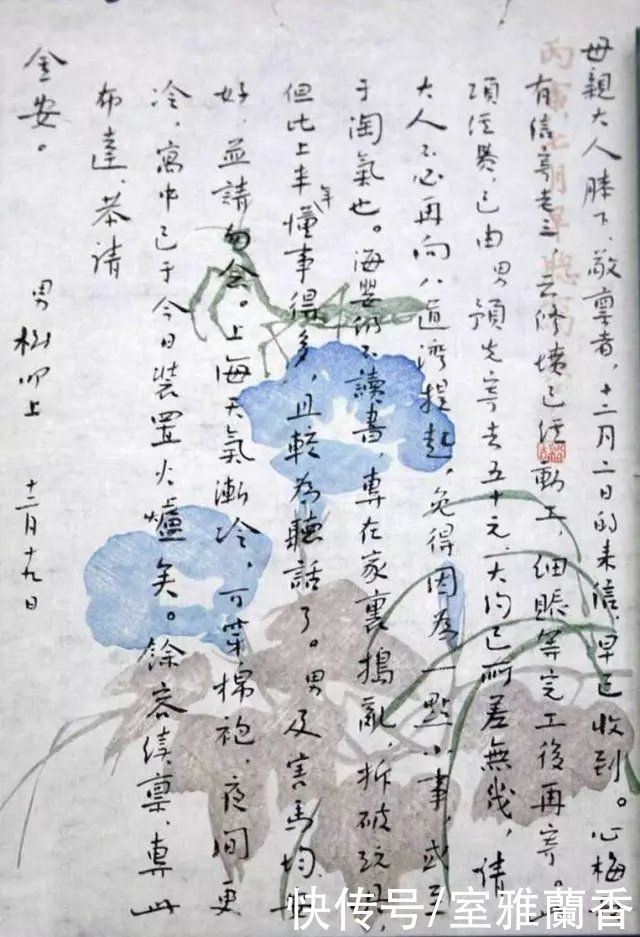 母親大人膝下,敬稟者,十二月二日的来信,早已收到。心梅
有信寄老三,云修墳已經動工,細賬等完工後再寄。此
項經費,已由男預先寄去五十元,大約已所差無幾,請
大人不必再向八道灣提起,免得因為一點小事,或至
于淘氣也。海嬰仍不讀書,專在家裏搗亂,拆破玩具,
但比上半年懂事得多,且較為聽話了。男及害馬均安
好,並請勿念。上海天氣漸冷,可穿棉袍,夜間更
冷,寓中已于今日裝置火爐矣。餘容續稟,專此
布達,恭請
金安。
男樹叩上 十二月十九日
快传号/室雅蘭香